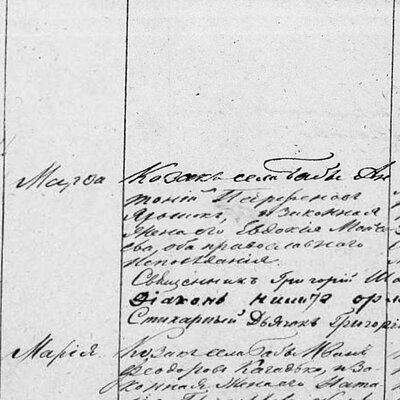 Марѳа
Козакъ села Бабы Ан
тоній Парѳеновъ
и законная
жена его Евдокія Матѳ
ева, оба православнаго
исповѣданія.
Священникъ Григорій
Діаконъ
Стихарный Дьячекъ Григорі
Марія
Козакъ села Бабы Иванъ
Ѳеодоровъ и за
конная жена его Ната